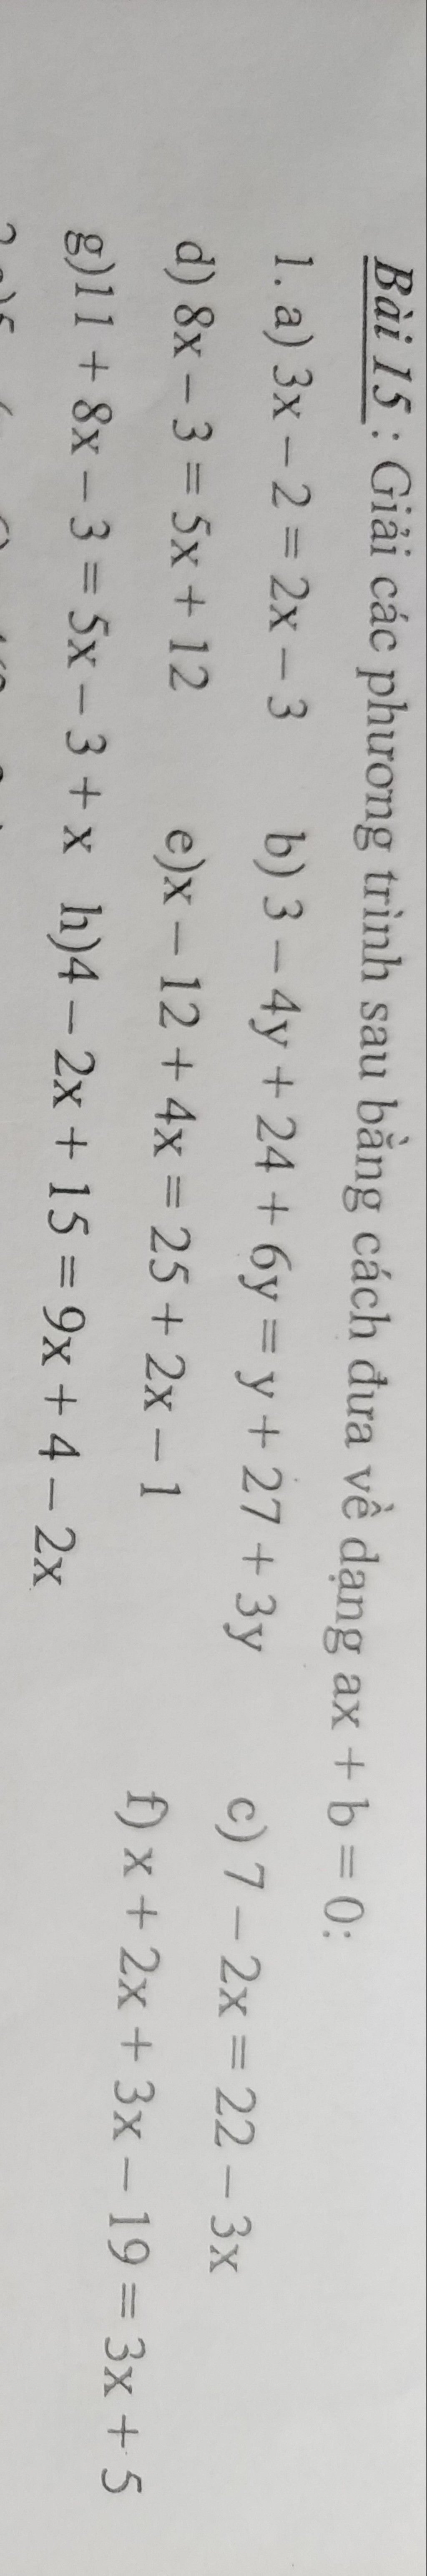 Bài 15: Giải các phương trình sau bằng cách đưa về dạng ax + b = 0:
1. a) 3x – 2 = 2x – 3 b) 3 – 4y + 24 + 6y = y + 27 + 3y c) 7 – 2x = 22 – 3x
d) 8x – 3 = 5x + 12 e)x – 12 + 4x = 25 + 2x – 1 f) x + 2x + 3x – 19 = 3x + 5
g)11 + 8x – 3 = 5x – 3 + x h)4 – 2x + 15 = 9x + 4 – 2x